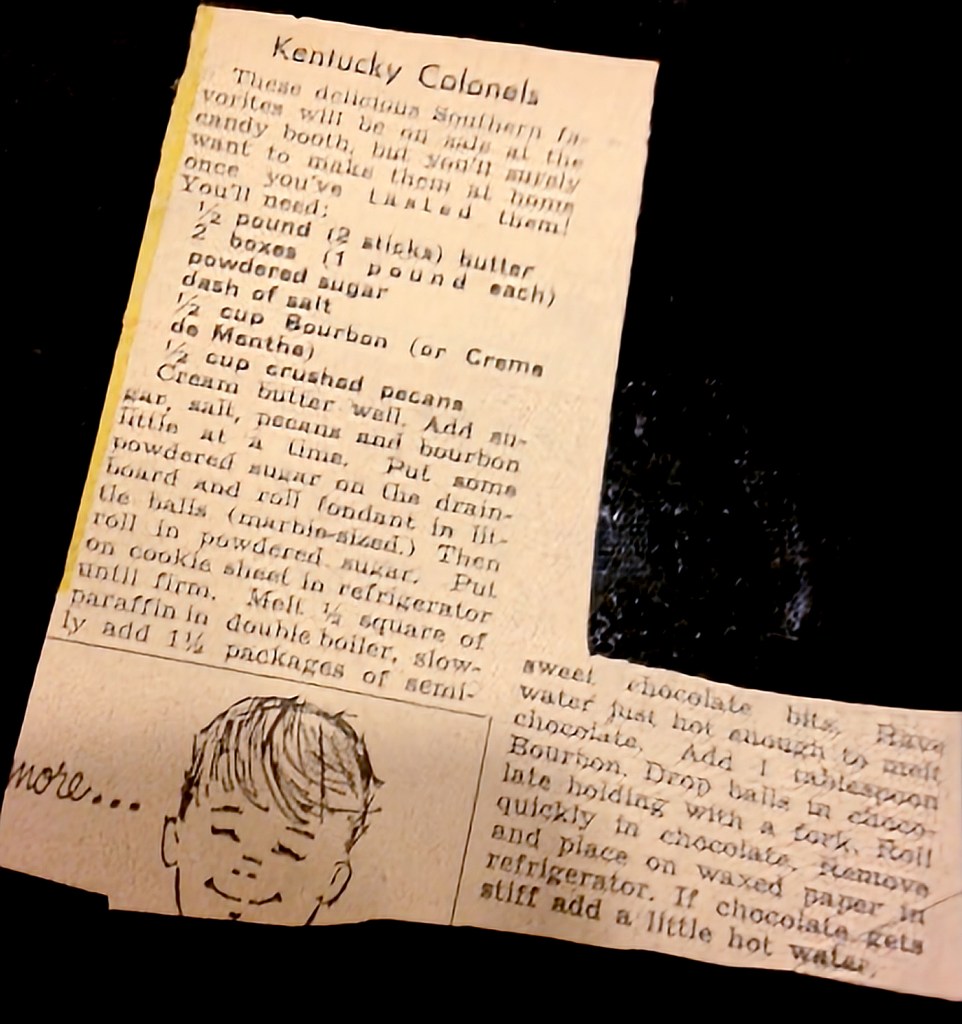 Kentucky Colonels
These delicious Southern fa-
vorites will be on sale at the
candy booth, but you'll surely
want to make them at home
once you've tasted them!
You'll need:
½ pound (2 sticks) butter
2 boxes (1 pound each)
powdered sugar
dash of salt
½ cup Bourbon (or Creme
de Menthe)
½ cup crushed pecans
Cream butter well. Add su-
gar, salt, pecans and bourbon
little at a time. Put some
powdered sugar on the drain-
board and roll fondant in lit-
tle balls (marble-sized.) Then
roll in powdered sugar. Put
on cookie sheet in refrigerator
until firm. Melt ½ square of
paraffin in double boiler, slow-
ly add 1½ packages of semi-
sweet chocolate bits. Have
water just hot enough to melt
chocolate. Add 1 tablespoon
Bourbon. Drop balls in choco-
late holding with a fork. Roll
quickly in chocolate. Remove
and place on waxed paper in
refrigerator. If chocolate gets
stiff add a little hot water.
more...